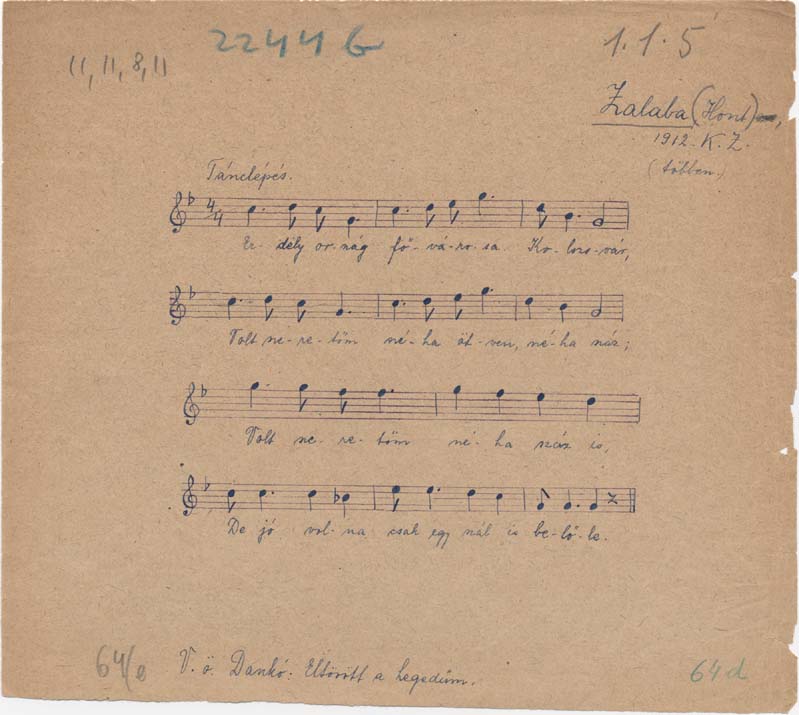 22446
1.1.5
11, 11, 8, 11
Zalaba (Hont),
1912. K. Z.
(többen.)
Tánclépés.
4/4
Er- dély or-szág fő-vá-ro-sa Ko-lozs-vár,
Volt sze-re-tőm né-ha öt-ven, né-ha száz;
Volt sze-re-tőm né-ha száz is,
De jó vol-na csak egy szál is be-lő-le.
64/e
V. ö. Dankó: Eltörött a hegedűm.
64d